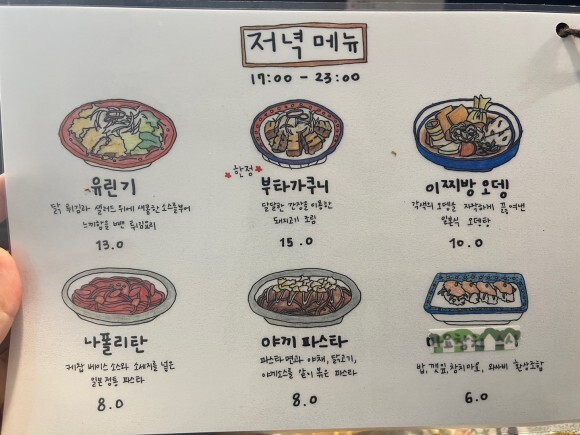 저녁 메뉴
17:00 - 23:00
유린기
닭 튀김과 샐러드 위에 새콤한 소스를 부어
느끼함을 뺀 튀김요리
13.0
한정
부타가쿠니
달달한 간장을 이용한
돼지고기 조림
15.0
이찌방 오뎅
각색의 오뎅을 자작하게 끓여낸
일본식 오뎅탕
10.0
나폴리탄
케찹 베이스 소스와 소세지를 넣은
일본 정통 파스타
8.0
야끼 파스타
파스타면과 야채, 닭고기,
야끼소스를 같이 볶은 파스타
8.0
밥, 깻잎, 참치마요, 와사비 환상조합
6.0